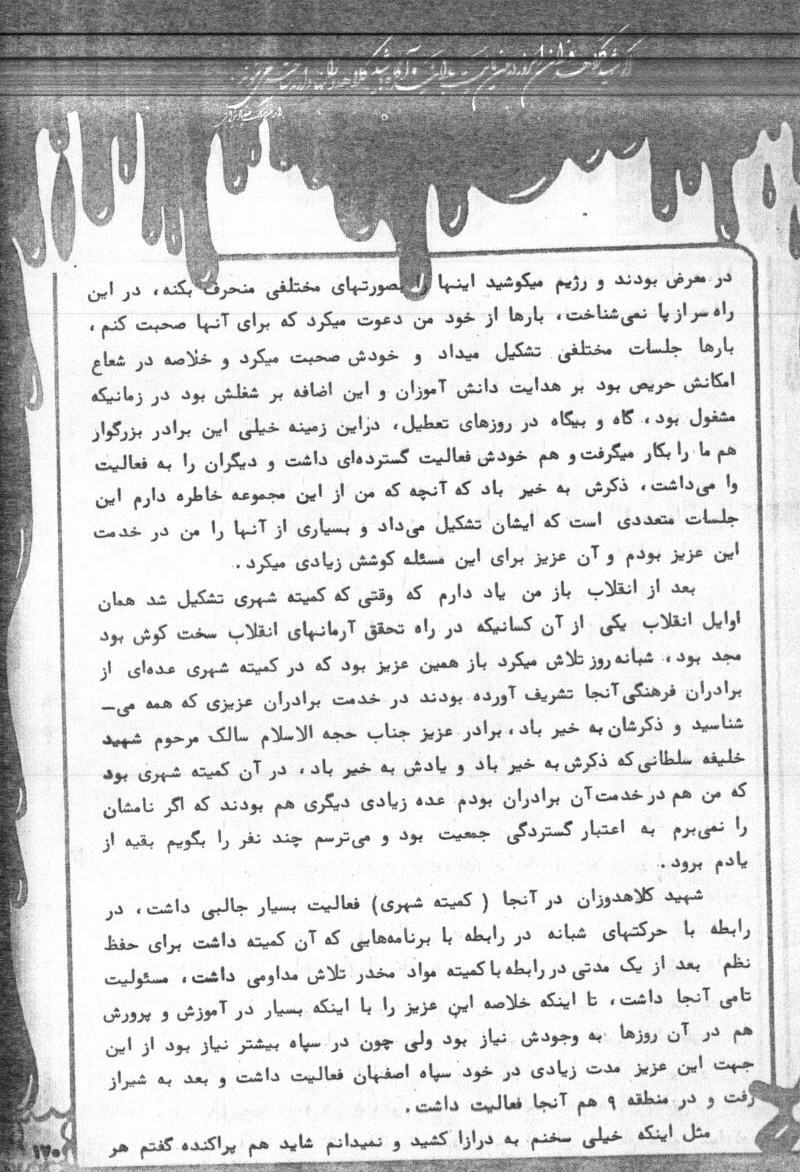 در معرض بودند و رژیم میکوشید اینها را بصورتهای مختلفی منحرف بکنه، در این
راه سر از پا نمی‌شناخت، بارها از خود من دعوت میکرد که برای آنها صحبت کنم،
بارها جلسات مختلفی تشکیل میداد و خودش صحبت میکرد و خلاصه در شعاع
امکانش حریص بود بر هدایت دانش آموزان و این اضافه بر شغلش بود در زمانیکه
مشغول بود، گاه و بیگاه در روزهای تعطیل، دراین زمینه خیلی این برادر بزرگوار
هم ما را بکار میگرفت و هم خودش فعالیت گسترده‌ای داشت و دیگران را به فعالیت
وا می‌داشت، ذکرش به خیر باد که آنچه که من از این مجموعه خاطره دارم این
جلسات متعددی است که ایشان تشکیل می‌داد و بسیاری از آنها را من در خدمت
این عزیز بودم و آن عزیز برای این مسئله کوشش زیادی میکرد.
بعد از انقلاب باز من یاد دارم که وقتی که کمیته شهری تشکیل شد همان
اوایل انقلاب یکی از آن کسانیکه در راه تحقق آرمانهای انقلاب سخت کوش بود
مجد بود، شبانه روز تلاش میکرد باز همین عزیز بود که در کمیته شهری عده‌ای از
برادران فرهنگی آنجا تشریف آورده بودند در خدمت برادران عزیزی که همه می‌ـ
شناسید و ذکرشان به خیر باد، برادر عزیز جناب حجه الاسلام سالک مرحوم شهید
خلیفه سلطانی که ذکرش به خیر باد و یادش به خیر باد، در آن کمیته شهری بود
که من هم در خدمت آن برادران بودم عده زیادی دیگری هم بودند که اگر نامشان
را نمی‌برم به اعتبار گستردگی جمعیت بود و می‌ترسم چند نفر را بگویم بقیه از
یادم برود.
شهید کلاهدوزان در آنجا ( کمیته شهری) فعالیت بسیار جالبی داشت، در
رابطه با حرکتهای شبانه در رابطه با برنامه‌هایی که آن کمیته داشت برای حفظ
نظم بعد از یک مدتی در رابطه با کمیته مواد مخدر تلاش مداومی داشت، مسئولیت
تامی آنجا داشت، تا اینکه خلاصه این عزیز را با اینکه بسیار در آموزش و پرورش
هم در آن روزها به وجودش نیاز بود ولی چون در سپاه بیشتر نیاز بود از این
جهت این عزیز مدت زیادی در خود سپاه اصفهان فعالیت داشت و بعد به شیراز
رفت و در منطقه ۹ هم آنجا فعالیت داشت.
مثل اینکه خیلی سخنم به درازا کشید و نمیدانم شاید هم پراکنده گفتم هر
۱۷۰